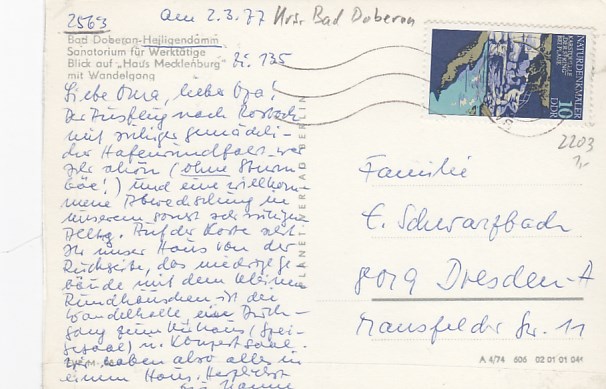 2563
am 2.3.77
Krs. Bad Doberan
Bad Doberan-Heiligendamm
Sanatorium für Werktätige
Blick auf „Haus Mecklenburg"
mit Wandelgang
Zi. 135
Liebe Oma, lieber Opa!
Der Ausflug nach Rostock
mit ruhiger gemütli-
cher Hafenrundfahrt war
sehr schön (ohne Sturm-
böe!) und eine willkom-
mene Abwechslung in
unserem sonst sehr ruhigen
Alltag. Auf der Karte seht
Ihr unser Haus von der
Rückseite, das niedrige Ge-
bäude mit dem kleinen
Rundhäuschen ist die
Wandelhalle, ein Durch-
gang zum Kurhaus (Spei-
sesaal) u. Konzertsaal.
Wir haben also alles in
einem Haus. Herzlichst
PLANET-VERLAG BERLIN
NATURDENKMÄLER
10
DDR
2203
1,-
Familie
E. Schwarzbach
8019 Dresden-A
Mansfelder Str. 11
A 4/74 506 02 01 01 041